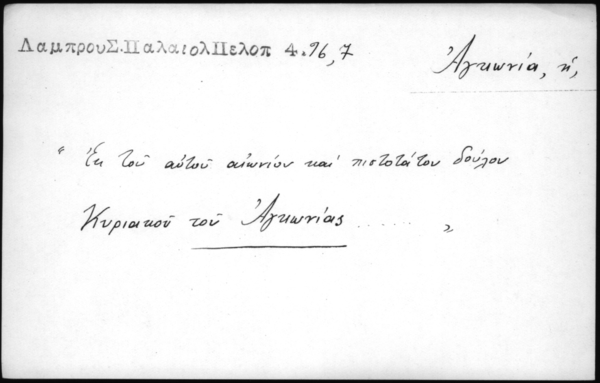 ΛαμπρουΣ.ΠαλαιολΠελοπ 4.96,7
Ἀγκωνία, ἡ,
" Ἐκ τοῦ αὐτοῦ αἰωνίου καὶ πιστοτάτου δούλου
Κυριακοῦ τοῦ Ἀγκωνίας ...... "